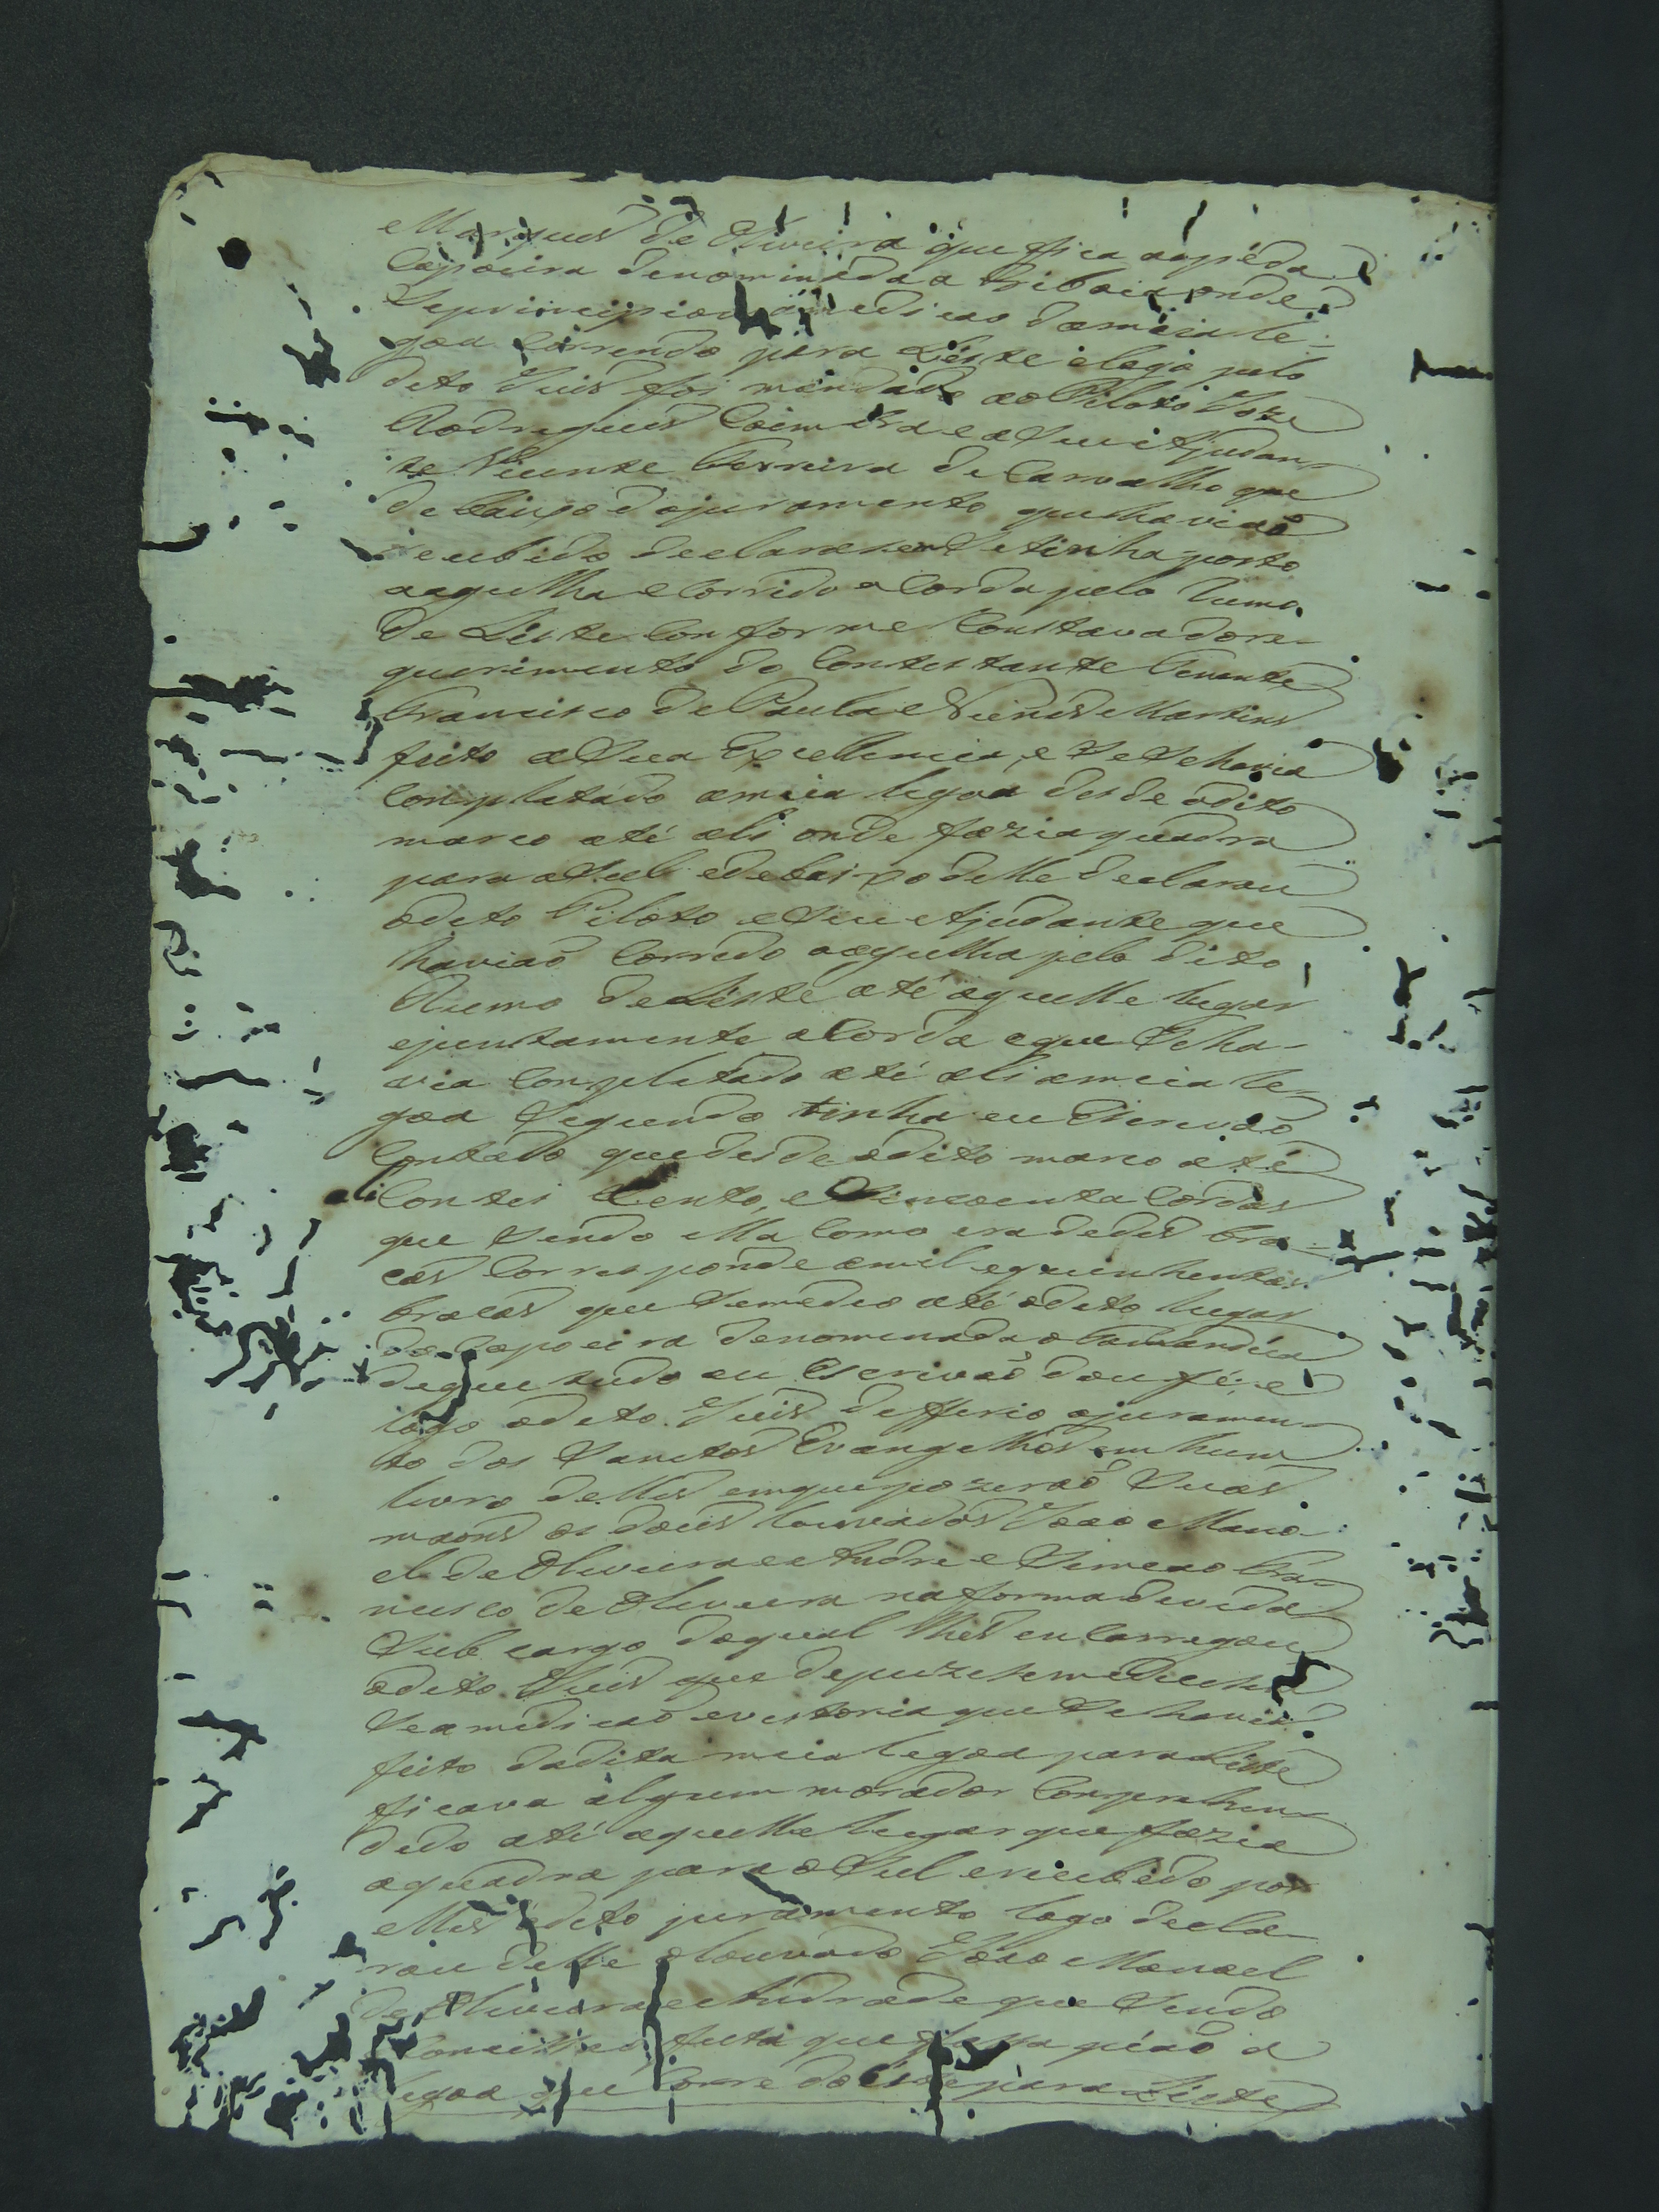 Marques de Oliveira que fica aopéda
Capoeira denominada a Cribaia onde
Seprincipiou amedicaõ dameia le-
goa Correndo para Léste elogo pelo
dito Juis foi mandado aoPiloto Joze
Rodrigues Coimbra e aSeu Ajudan-
te Vicente Ferreira de Carvalho que
debaixo dojuramento que haviaõ
recebido declarasem Setinha posto
aagulha eCorrido aCorda pelo Rumo
de Léste Conforme Constava dore-
querimento do Contestante Tenente
Francisco dePaula eMartins
feito aSua Excellencia, e SeSehavia
Completado ameia legoa desde odito
marco até ali onde fazia quadra
para oSul edebaixo delle declarou
odito Piloto eSeu Ajudante que
haviaõ Corrido aagulha pelo dito
Rumo deLéste até aquelle lugar
ejuntamente aCorda eque Seha-
via Completado até ali ameia le-
goa Segundo tinha eu Escrivaõ
Contado que desde odito marco até
ali Contei Cento, e Sincoenta Cordas
que Sendo ella Como era dedes bra-
cas Corresponde amil equinhentas
bracas que Semedio até odito lugar
da Capoeira denominada
deque tudo eu Escrivaõ dou fé, e
logo odito Juis defferio ojuramen-
to dos Sanctos Evangelhos em hum
livro delles emque pozeraõ Suas
maons os dous louvados Joaõ Mano-
el de Oliveira e Andre e Simeaõ Fran-
cisco de Oliveira na forma devida
Sub cargo doqual lhes emCarregou
odito Juis que depuzesem
Se amedicaõ evestoria que Sehavia
feito dadita meia legoa para Léste
ficava algum morador Comprehen-
dido até aquelle lugar que fazia
aquadra para oSul e recebido por
elles odito juramento logo decla-
rou delle olouvado Joaõ Manoel
de Oliveira e Andrade que Sendo
feita que piaõ a
legoa que Corre do para Léste